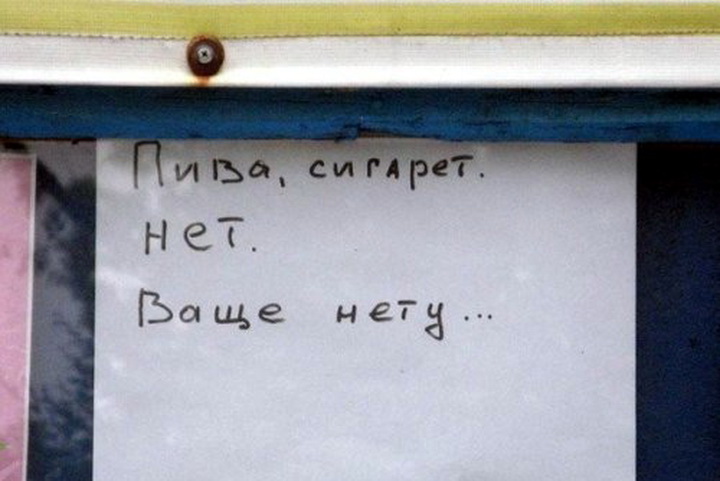 Пива, сигарет.
нет.
Ваще нету...